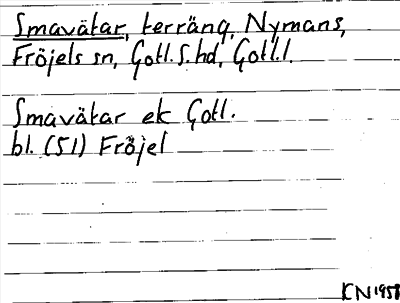 Smavätar, terräng, Nymans,
Fröjels sn, Gotl.S.hd, Gotl.l.
Smavätar ek Gotl.
bl. (51) Fröjel
KN 1958